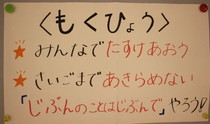 〈もくひょう〉
★みんなでたすけあおう
★さいごまであきらめない
「じぶんのことはじぶんで」やろう!